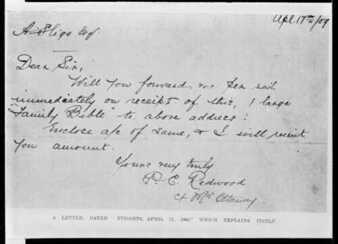 Apl. 17th/09
Dear Sir;
Will you forward me
immediately on receipt of this, 1 large
"Family Bible" to above address:
Enclose a/c of same, & I will remit
you amount.
Yours very truly
C. Redwood
A LETTER, DATED APRIL WHICH EXPLAINS ITSELF